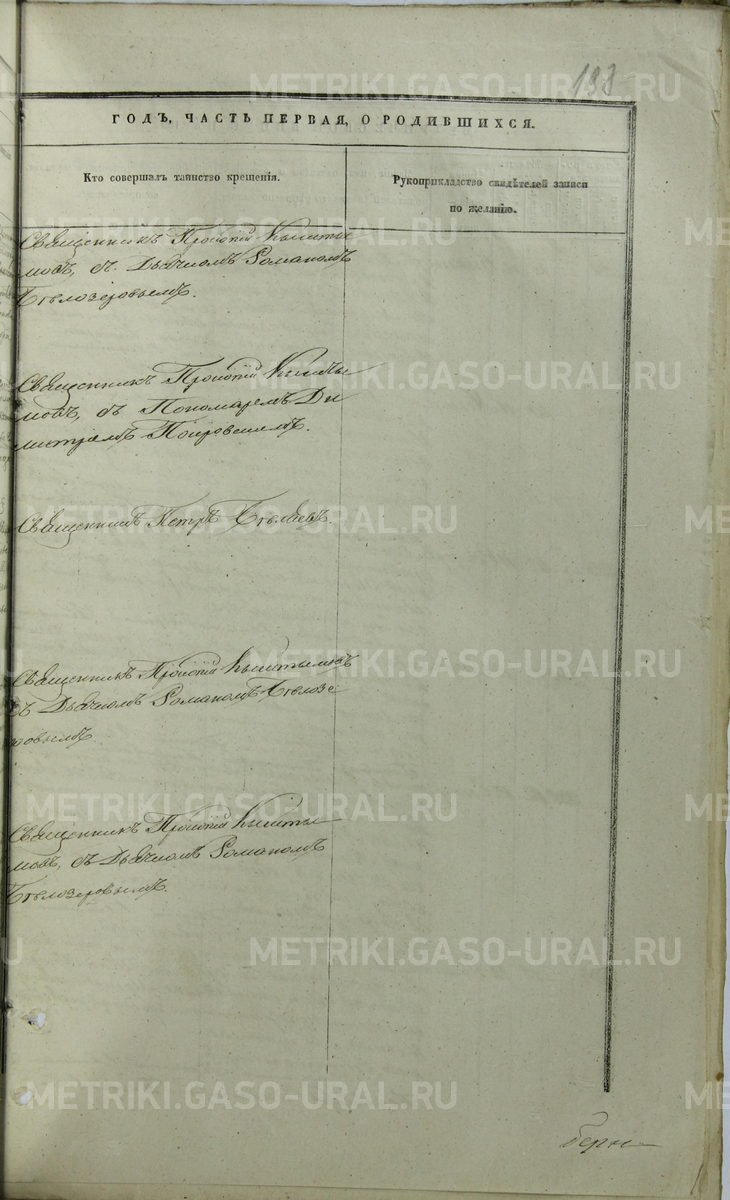 193
ГОДЪ, ЧАСТЬ ПЕРВАЯ, О РОДИВШИХСЯ.
Кто совершалъ таинство крещенія.
Рукоприкладство свидѣтелей записи
по желанію.
Священникъ Прокопій Кышты
мовъ, съ Дьячкомъ Романомъ
Бѣлозеровымъ.
Священникъ Прокопій Кышты
мовъ, съ Пономаремъ Ди
митріемъ Покровскимъ.
Священникъ Петръ Бѣляевъ.
Священникъ Прокопій Кыштымовъ
съ Дьячкомъ Романомъ Бѣлозе
ровымъ
Священникъ Прокопій Кышты
мовъ, съ Дьячкомъ Романомъ
Бѣлозеровымъ.
METRIKI.GASO-URAL.RU